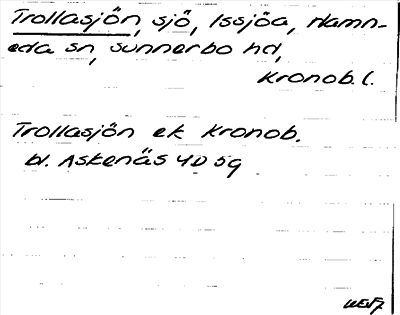 Trollasjön, sjö, Issjöa, Hamn-
eda sn, Sunnerbo hd,
Kronob. l.
Trollasjön ek Kronob.
bl. Askenäs 4D 5g